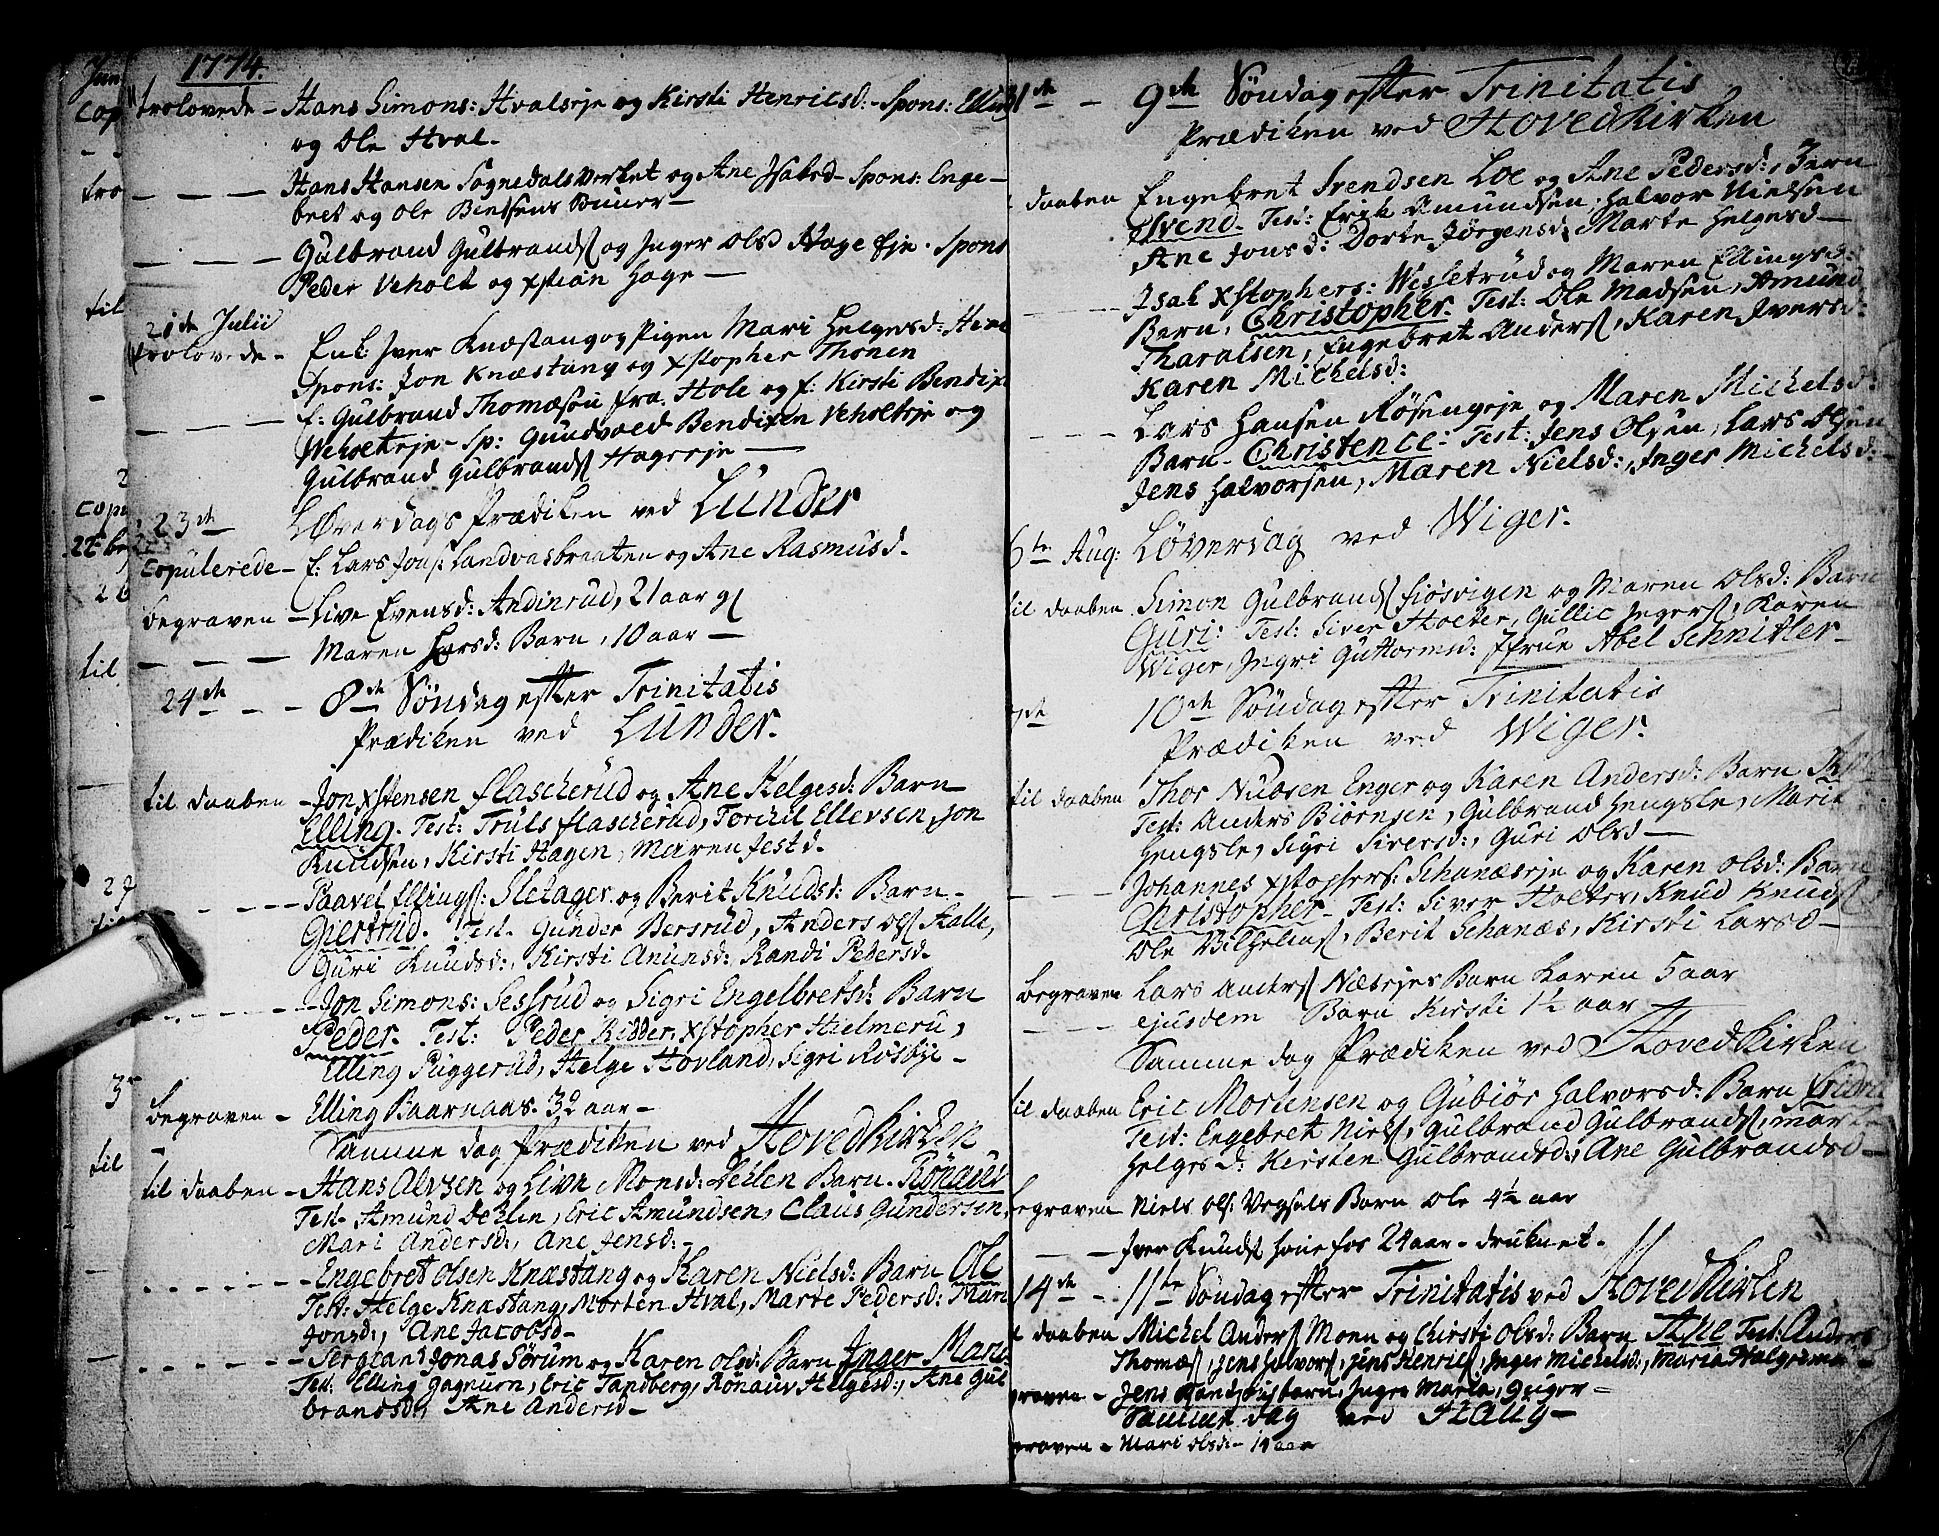 1774.
trolovede - Hans Simons: Hvalseje og Kirsti Henricsd: - Spons:
og Ole Hval.
Hans Hansen Sognedals Verket og Ane Isaksd - Spons: Enge-
bret og Ole
Gulbrand Gulbrands og Inger Olsd Hage Eje. Spons
Peder Veholt og Xstian Hage -
21de Julii
trolovede - Enk: Iver Knæstang og Pigen Mari Helgesd:
Spons: Jon Knæstang og Xstopher Thonen
f: Gulbrand Thomæsøn fra Hole og f: Kirsti Bendix
Veholtseje - Sp: Gundvold Bendixen Veholtseje og
Gulbrand Gulbrands Hageseje -
23de Løverdags Prædiken ved Lunder
Copulerede - f: Lars Jons: Landvasbraaten og Ane Rasmusd.
begraven - Live Evensd: Andinrud, 21 aar gl
Maren Larsd: Barn, 10 aar -
24de - - 8de Søndag efter Trinitatis
Prædiken ved Lunder.
til daaben - Jon Xstensen Flascherud og Ane Helgesd: Barn
Elling. Test: Truls Flascherud, Torchil Ellevsen, Jon
Knudsen, Kirsti Hagen, Maren Festd.
- - - Paavel Ellings: Sletager og Berit Knudsd: Barn -
Giertrud. Test. Gunder Bersrud, Anders Ols Halle,
Guri Knudsd:, Kirsti Amunsd:, Randi Pedersd.
- - - Jon Simons: Sessrud og Sigri Engelbretsd: Barn
Peder. Test: Peder Ridder, Xstopher Hielmeru,
Elling Puggerud, Helge Hovland, Sigri Røsbye -
begraven - Elling Baarnaas. 32 aar -
Samme dag Prædiken ved Hoved Kirken
til daaben - Hans Alvsen og Live Monsd: Dehlen Barn. Rønauv
Test. Amund Dehlen, Eric Amundsen, Claus Gundersen,
Mari Andersd:, Ane Jensd: -
- - - Engebret Olsen Knæstang og Karen Nielsd: Barn Ole
Test: Helge Knæstang, Morten Hval, Marte Pedersd: Mari
Jonsd:, Ane Jacobsd -
- - - Sergeant Jonas Sørum og Karen Olsd: Barn Inger Marie
Test: Elling Gagnum, Eric Tandberg, Rønauv Helgesd:, Ane Gul
brandsd, Ane Andersd -
9de Søndag efter Trinitatis
Prædiken ved Hoved Kirken
daaben Engebret Svendsen Loe og Ane Pedersd:, Barn
Svend. Test: Erik Amundsen, Halvor Nielsen
Ane Jonsd: Dorte Jørgensd, Marte Helgesd -
Isak Xstophers: Wessetrud og Maren Ellingsd:
Barn, Christopher. Test: Ole Madsen, Amund
Tharalsen, Engebret Anders, Karen Iversd:
Karen Michelsd:
Lars Hansen Røsengeje og Maren Michelsd:
Barn - Christence: Test: Jens Olsen, Lars Olsen
Jens Halvorsen, Maren Nielsd:, Inger Michelsd:
6te Aug: Løverdag ved Wiger.
til daaben Simon Gulbrands Fiøsvigen og Maren Olsd: Barn
Guri: Test: Siver Holter, Gullic Ingers, Karen
Wiger, Ingri Guttormsd: Jfrue Abel Schnitler -
10de Søndag efter Trinitatis
Prædiken ved Wiger.
til daaben Thor Nubsen Enger og Karen Andersd: Barn
Test: Anders Biørnsen, Gulbrand Hengsle, Marit
Hengsle, Sigri Siversd:, Guri Olsd -
Johannes Xstophers: Schanæseje og Karen Olsd: Barn
Christopher - Test: Siver Holter, Knud Knuds
Ole Vilhelms, Berit Schanæs, Kirsti Larsd -
begraven Lars Anders Næsejes Barn Karen 5 aar
- - - ejusdem Barn Kirsti 1½ aar
Samme dag Prædiken ved Hoved Kirken
til daaben Eric Mortensen og Gubiør Halvorsd: Barn
Test: Engebret Niels, Gulbrand Gulbrands,
Helgesd: Kirsten Gulbrandsd:, Ane Gulbrandsd -
begraven Niels Ols: Vegsals Barn Ole 4½ aar
- - - Iver Knuds Hønefos 24 aar - druknet.
14de - 11te Søndag efter Trinitatis ved Hoved Kirken
daaben Michel Anders Moen og Chirsti Olsd: Barn Ane Test: Anders
Thomæs, Jens Halvors, Jens Henrics, Inger Michelsd:,
graven - Jens Barn, Inger Maria,
Samme dag ved Haug -
graven - Mari Olsd: - 14 aar